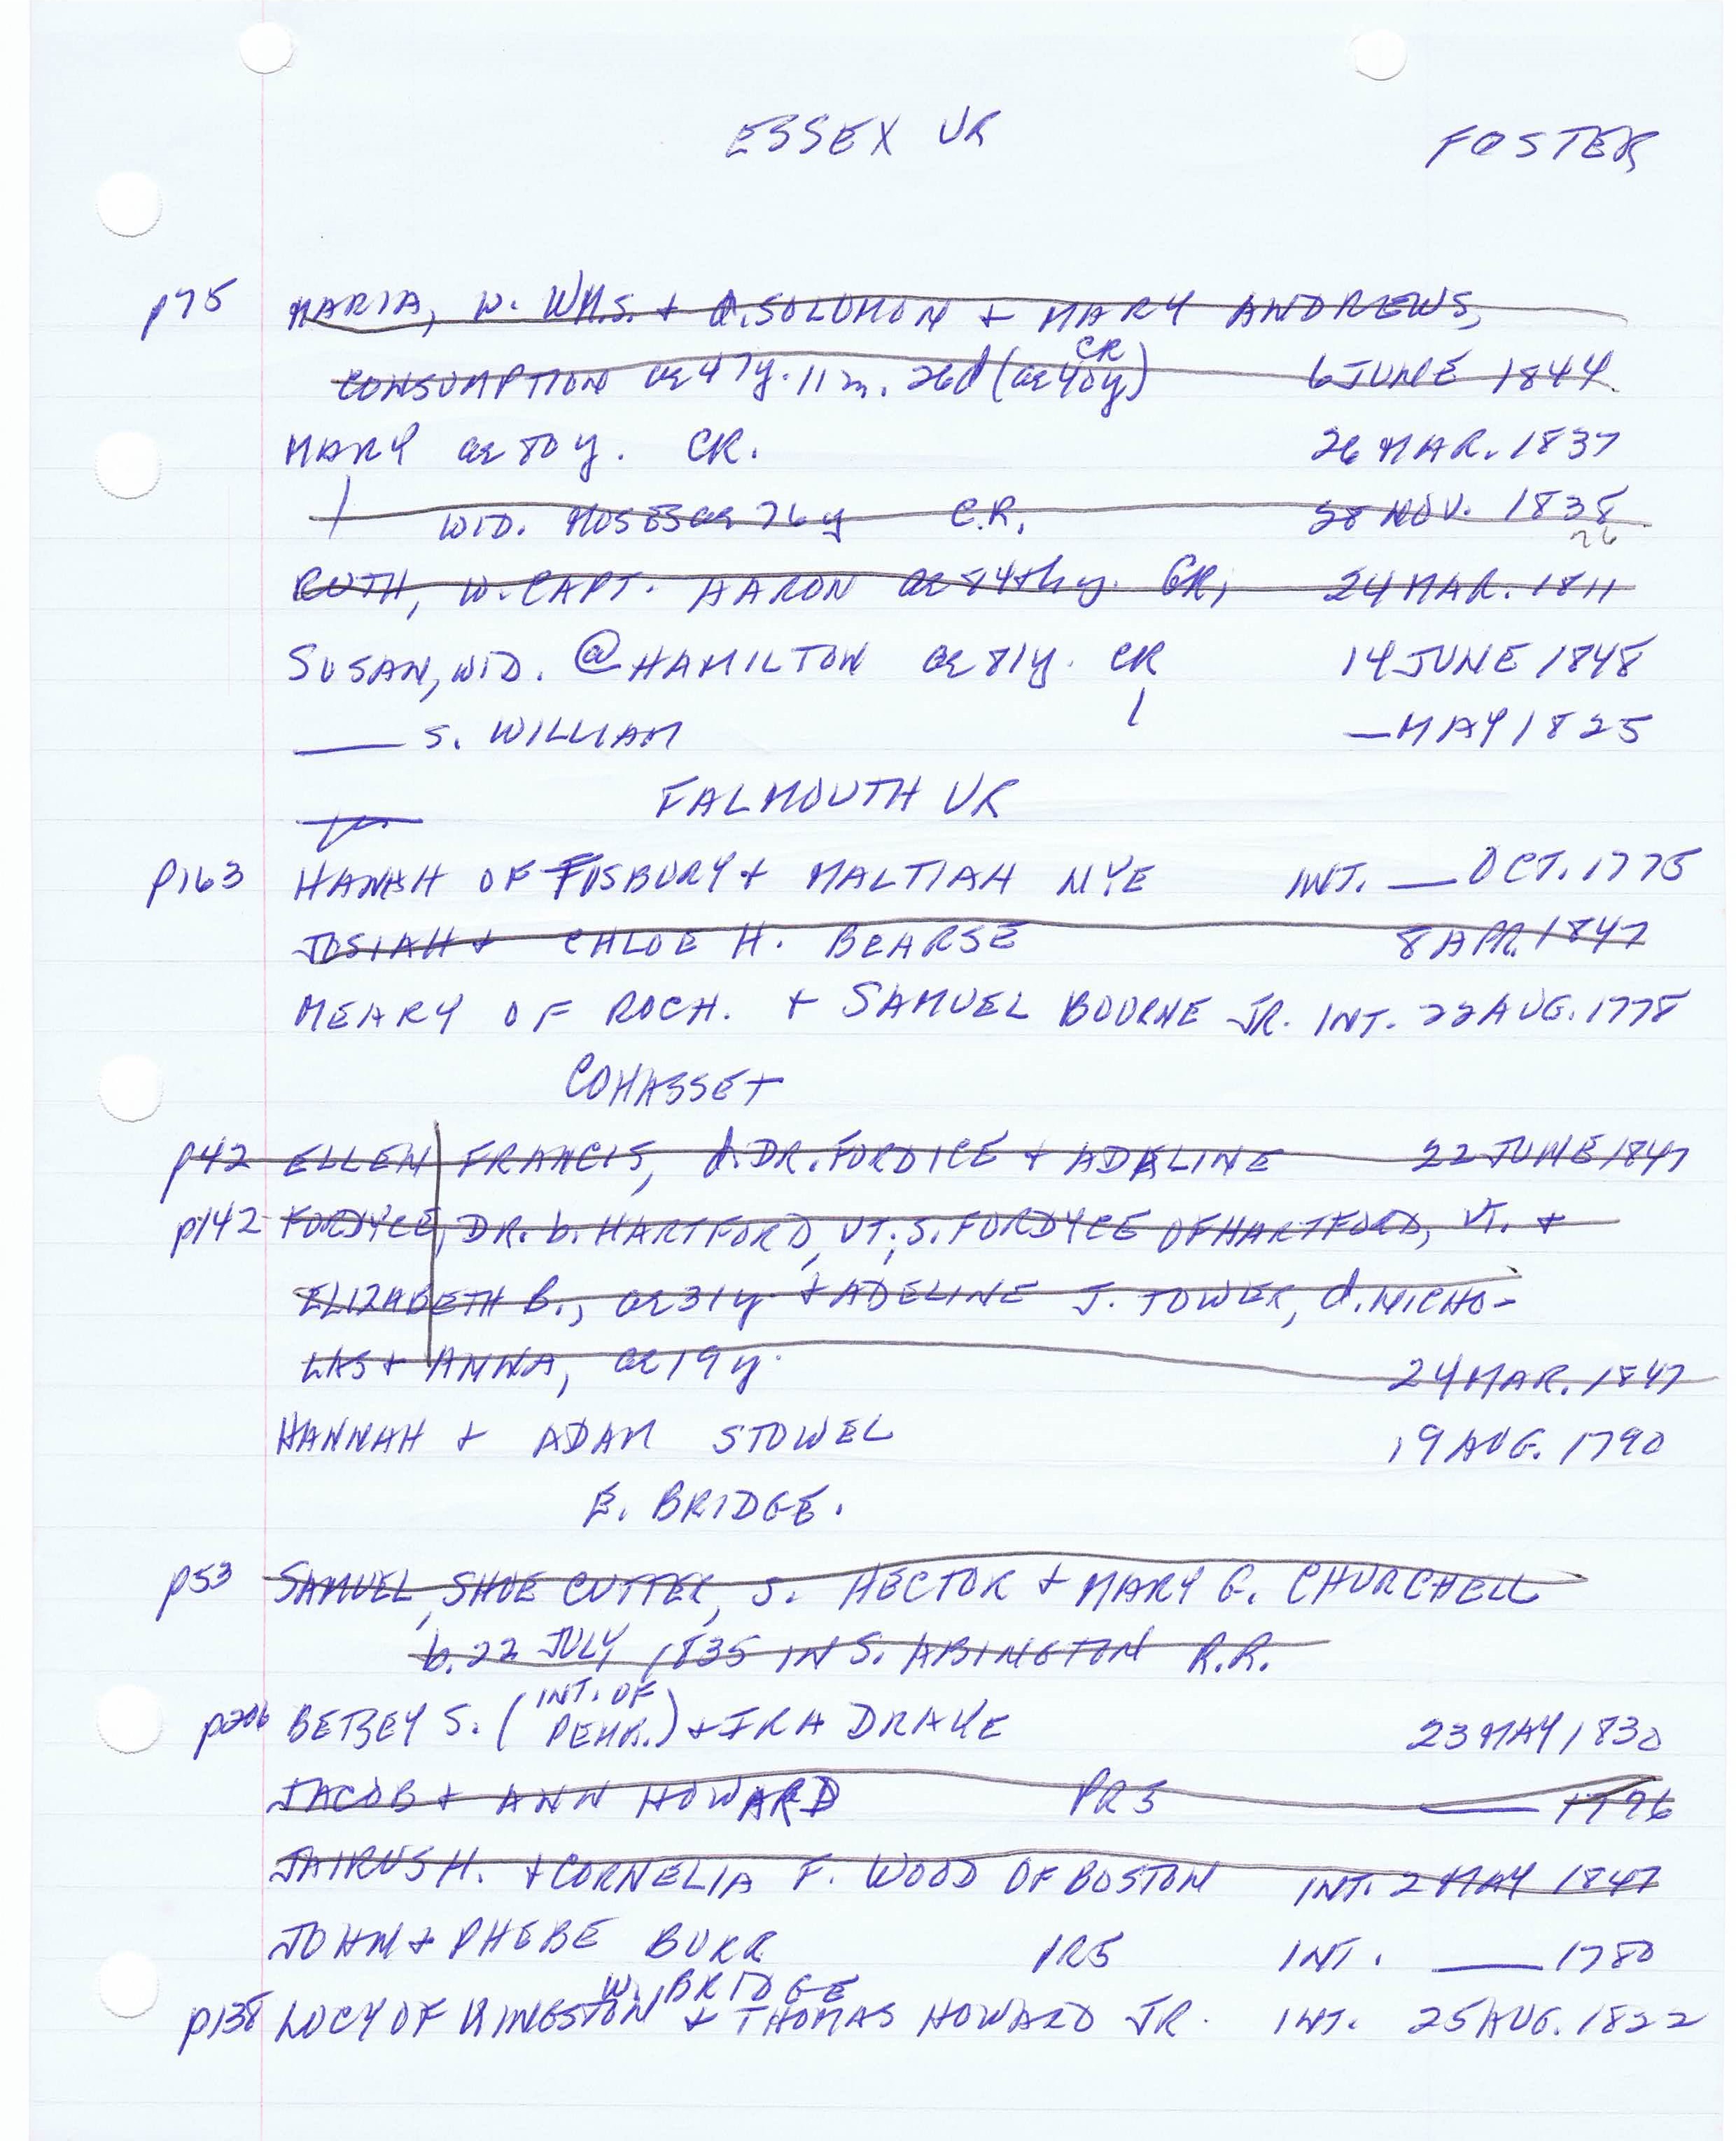 ESSEX VR FOSTER
p75 MARIA, W. WM.S. + d. SOLOMON + MARY ANDREWS,
CONSUMPTION ae 47y. 11m. 26d (ae 40y) CR 6 JUNE 1844.
MARY ae 80y. CR. 26 MAR. 1837
WID. MOSES ae 76y C.R. 28 NOV. 1838
26
RUTH, W. CAPT. AARON ae 84thy. GR, 24 MAR. 1811
SUSAN, WID. @ HAMILTON ae 81y. CR 14 JUNE 1848
___ S. WILLIAM — MAY 1825
FALMOUTH VR
p163 HANAH OF TISBURY + MALTIAH NYE INT. ___ OCT. 1775
JOSIAH + CHLOE H. BEARSE 8 APR. 1847
MEARY OF ROCH. + SAMUEL BOURNE JR. INT. 22 AUG. 1778
COHASSET
p42 ELLEN FRANCIS, d. DR. FORDICE + ADALINE 22 JUNE 1847
p142 FORDYCE, DR. b. HARTFORD, VT., S. FORDYCE OF HARTFORD, VT. +
ELIZABETH B., ae 31y. + ADELINE J. TOWER, d. NICHO-
LAS + ANNA, ae 19y. 24 MAR. 1847
HANNAH + ADAM STOWEL 19 AUG. 1790
E. BRIDGE.
p53 SAMUEL, SHOE CUTTER, S. HECTOR + MARY G. CHURCHELL
b. 22 JULY 1835 IN S. ABINGTON R.R.
p206 BETSEY S. (INT. OF PEMB.) + IRA DRAKE 23 MAY 1830
JACOB + ANN HOWARD PR5 ___ 1796
JAIRUS H. + CORNELIA F. WOOD OF BOSTON INT. 2 MAY 1847
JOHN + PHEBE BURR PR5 INT. ___ 1780
W. BRIDGE
p138 LUCY OF KINGSTON + THOMAS HOWARD JR. INT. 25 AUG. 1822